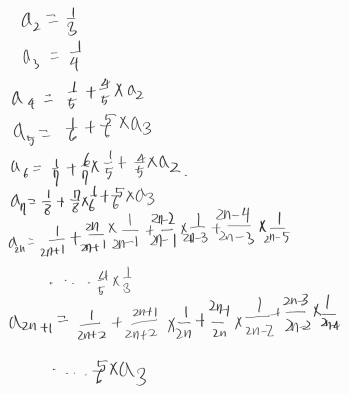 a₂ = 1/3
a₃ = 1/4
a₄ = 1/5 + 4/5 × a₂
a₅ = 1/6 + 5/6 × a₃
a₆ = 1/7 + 6/7 × 1/5 + 4/5 × a₂.
a₇ = 1/8 + 7/8 × 1/6 + 5/6 × a₃
a₂ₙ = 1/(2n+1) + 2n/(2n+1) × 1/(2n-1) + (2n-2)/(2n-1) × 1/(2n-3) + (2n-4)/(2n-3) × 1/(2n-5)
..... 4/5 × 1/3
a₂ₙ₊₁ = 1/(2n+2) + (2n+1)/(2n+2) × 1/2n + (2n-1)/2n × 1/(2n-2) + (2n-3)/(2n-2) × 1/(2n-4)
.... 5/6 × a₃